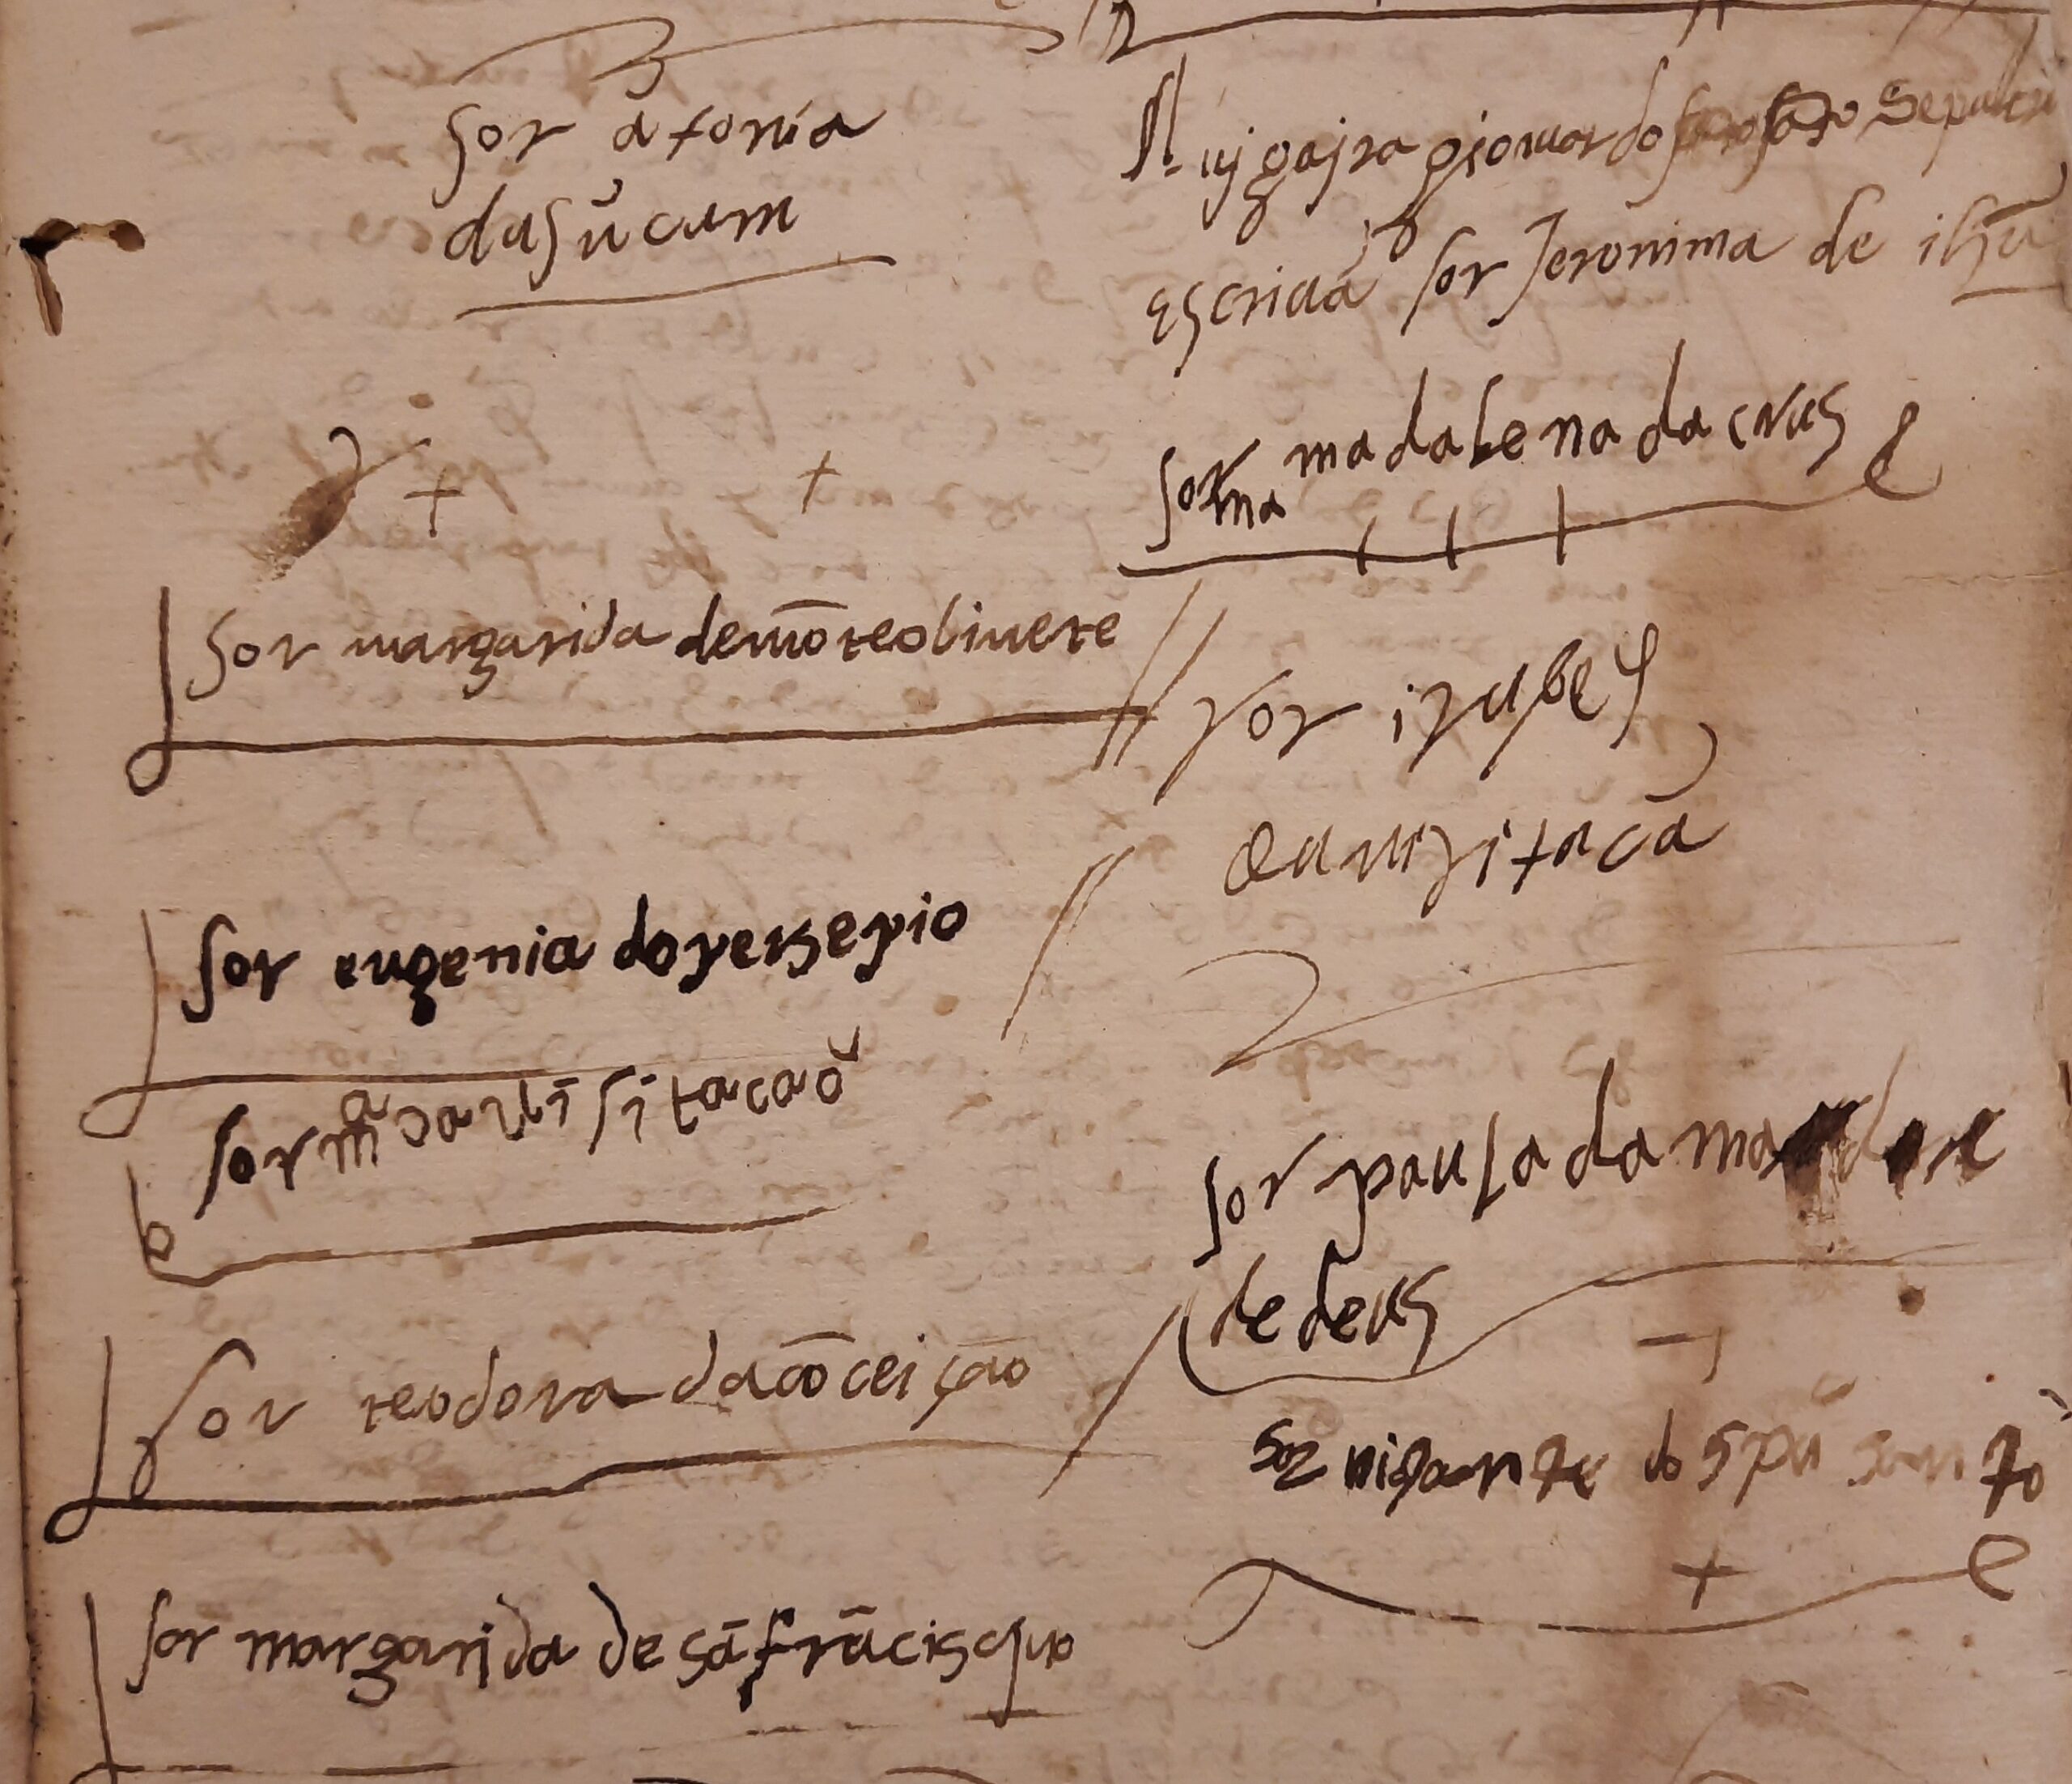 sor atonia
dasũcam
sor margarida demõteolivete
sor eugenia do persepio
sor mª da visitacaõ
sor teodora da cõceição
sor margarida de sã frãcisquo
vigajra do santo Sepulcr
escrivã sor Jeronima de ihũ
sor madalena da crus
ma
sor izabel
da vizitacã
sor paula da madre
de deus
sor de spũ santo